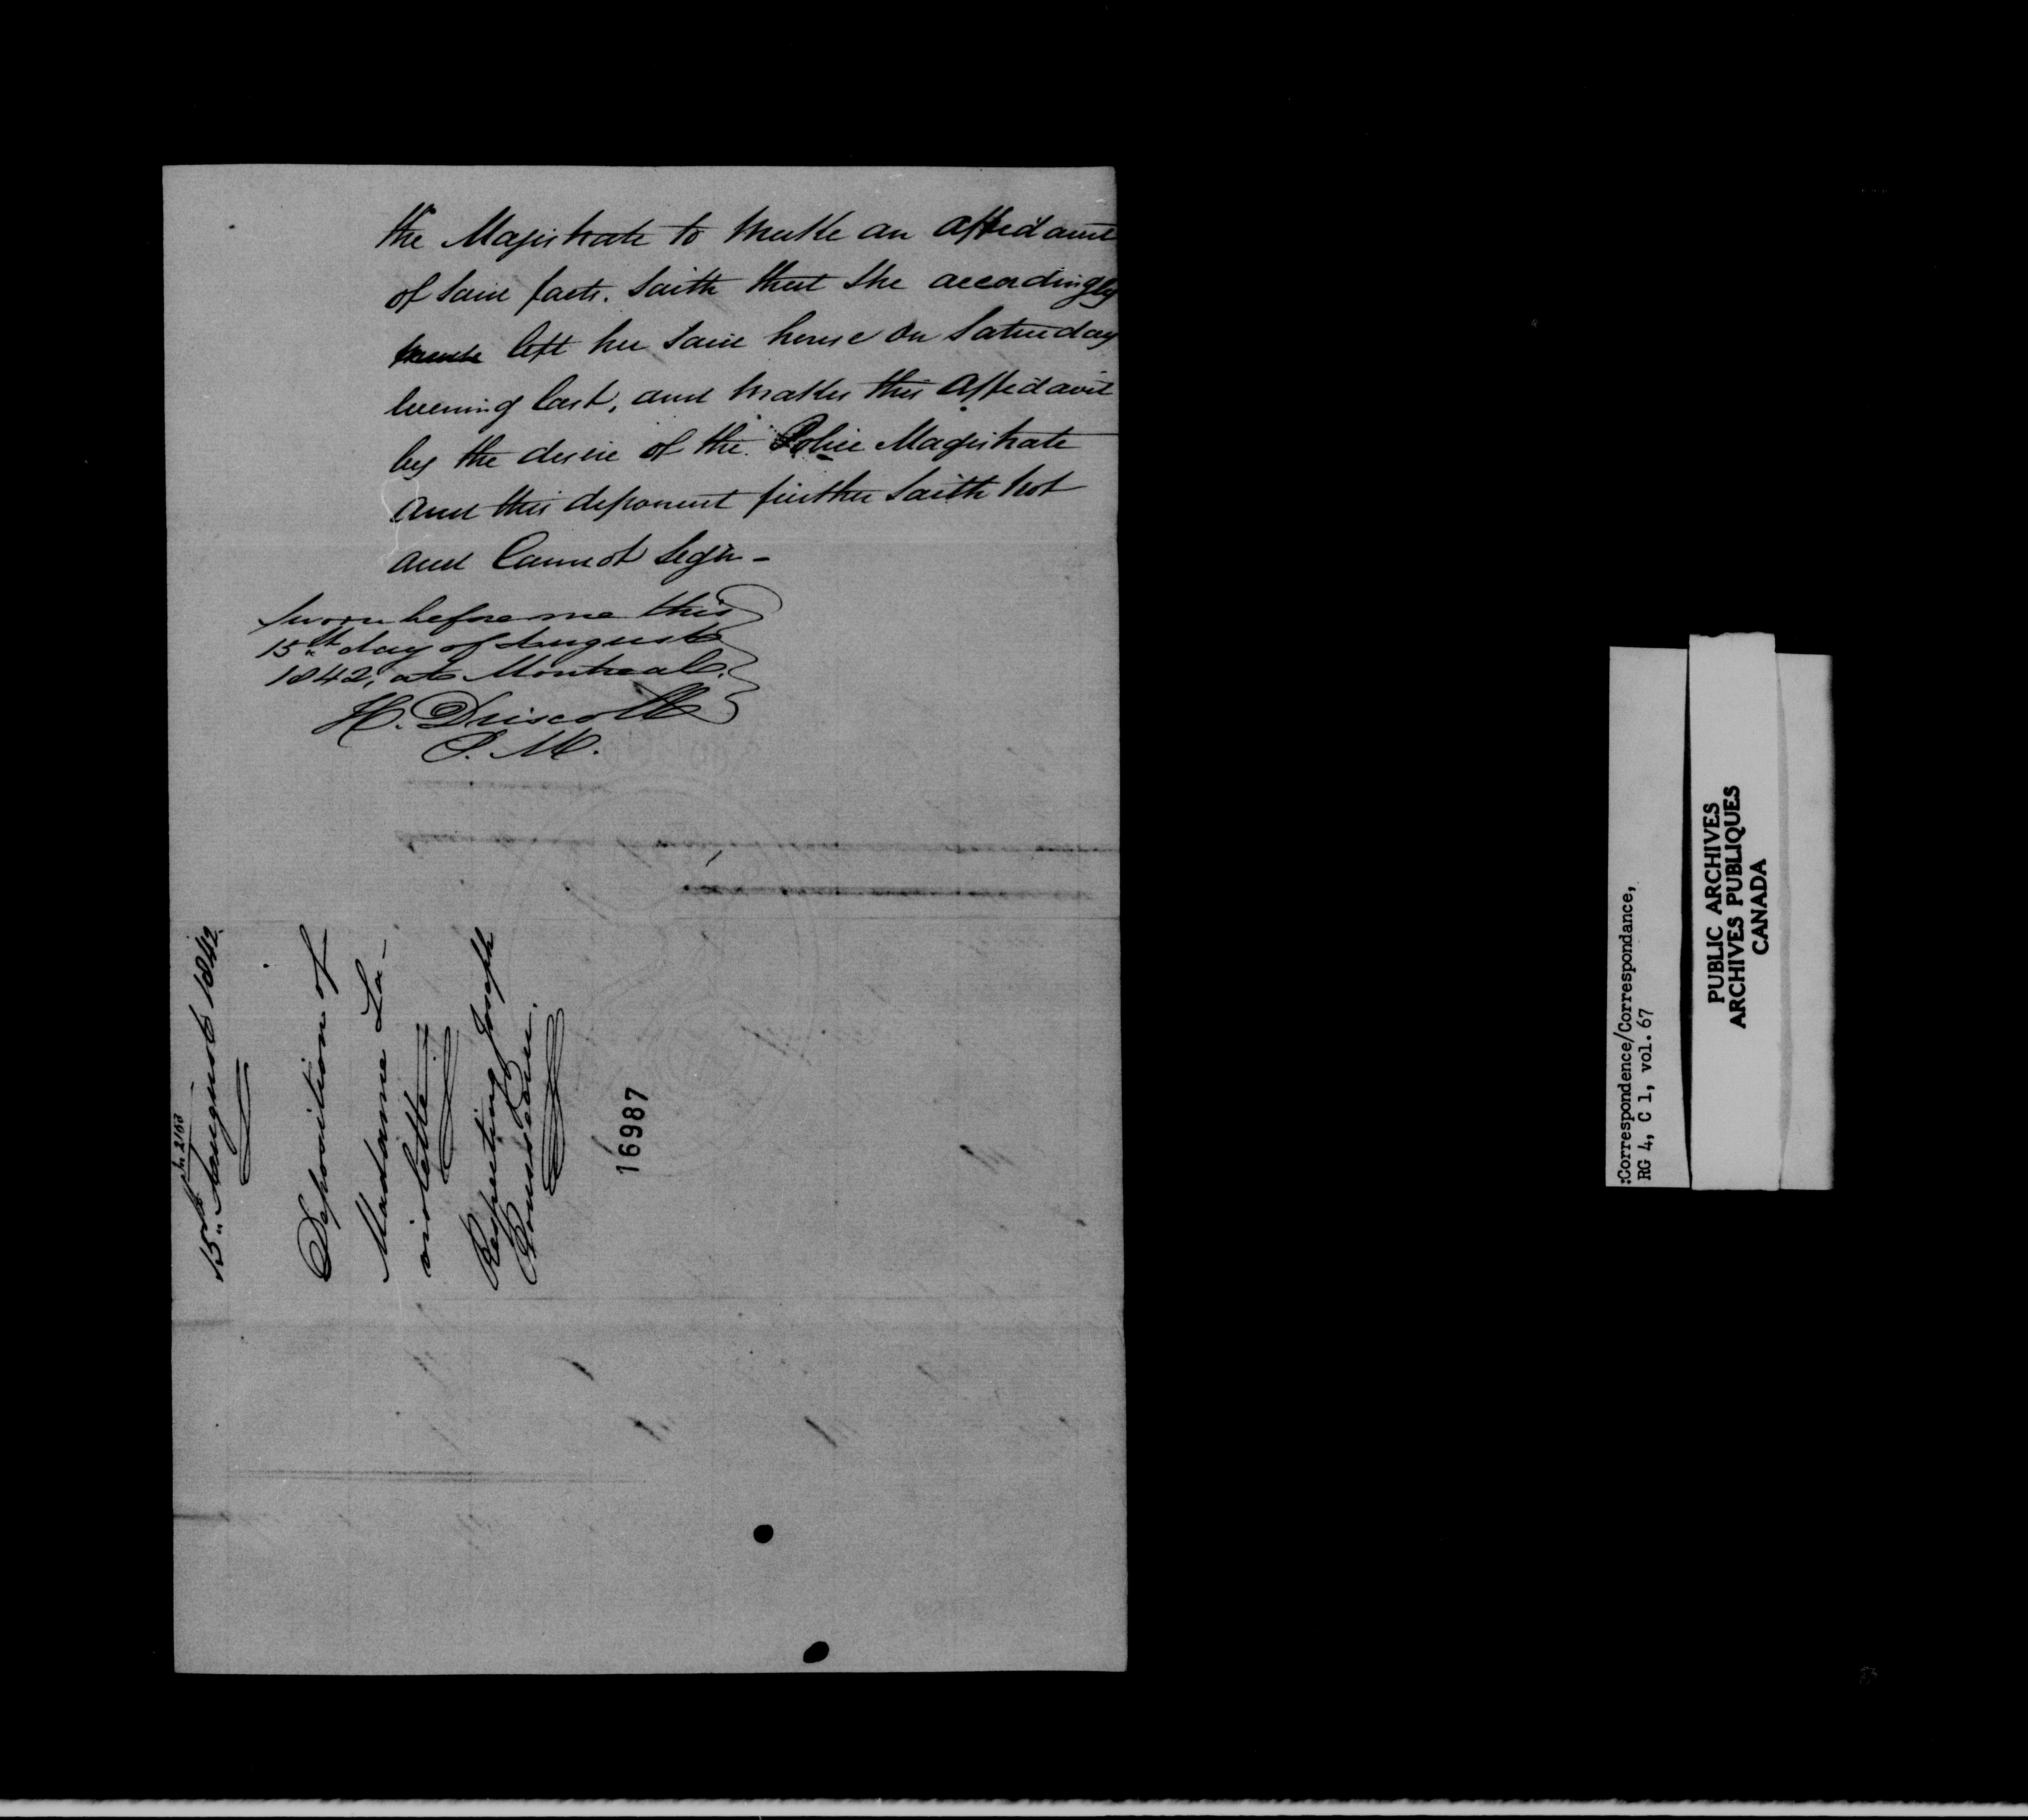 the Magistrate to make an affidavit
of said facts. Saith that she accordingly
left her said house on Saturday
evening last, and makes this Affidavit
by the desire of the Police Magistrate
and this deponent further Saith not
and Cannot sign -
Sworn before me this
15th day of August
1842, at Montreal.
H. Driscoll
P. M.
15th August 1842.
Deposition of
Madame La-
violette
Respecting Joseph
16987
:Correspondence/Correspondance,
RG 4, C 1, vol. 67
PUBLIC ARCHIVES
ARCHIVES PUBLIQUES
CANADA